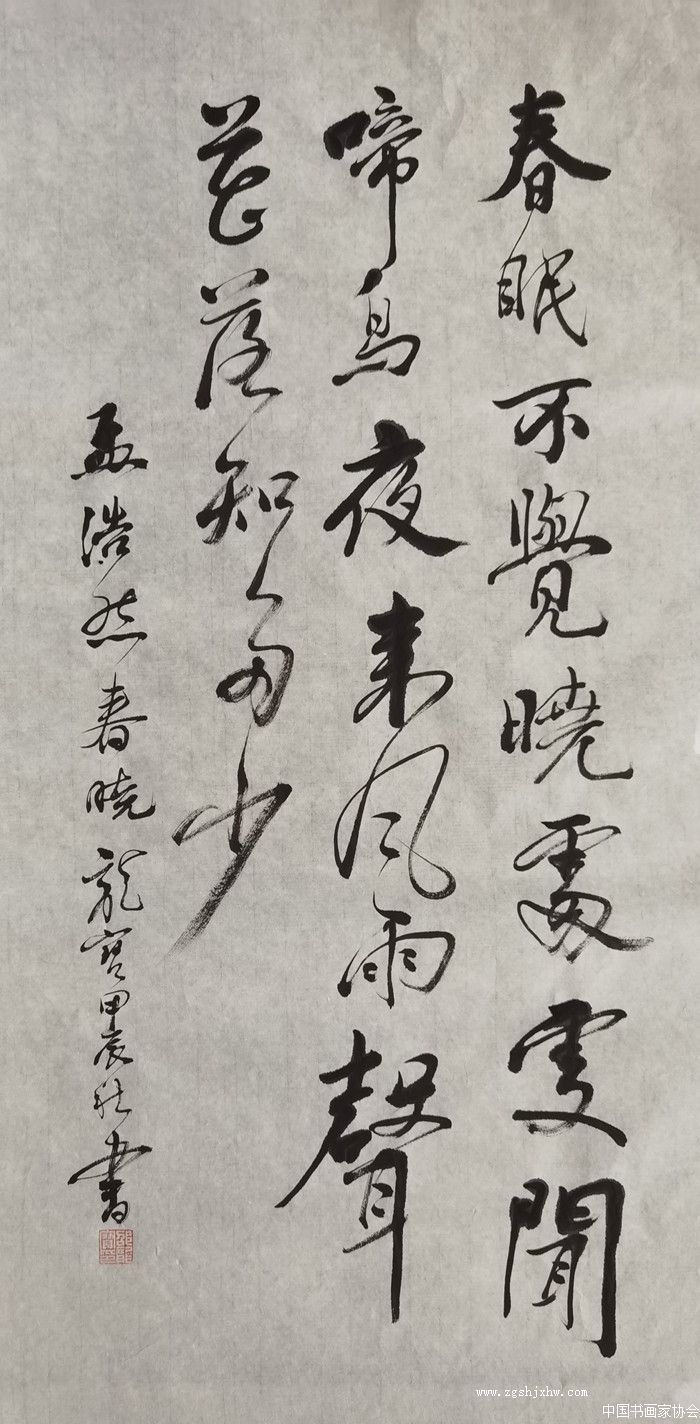 春眠不覺曉處處聞
啼鳥夜来風雨聲
花落知多少
孟浩然春曉龍寶甲辰秋書
www.zgshjxhw.com
中国书画家协会